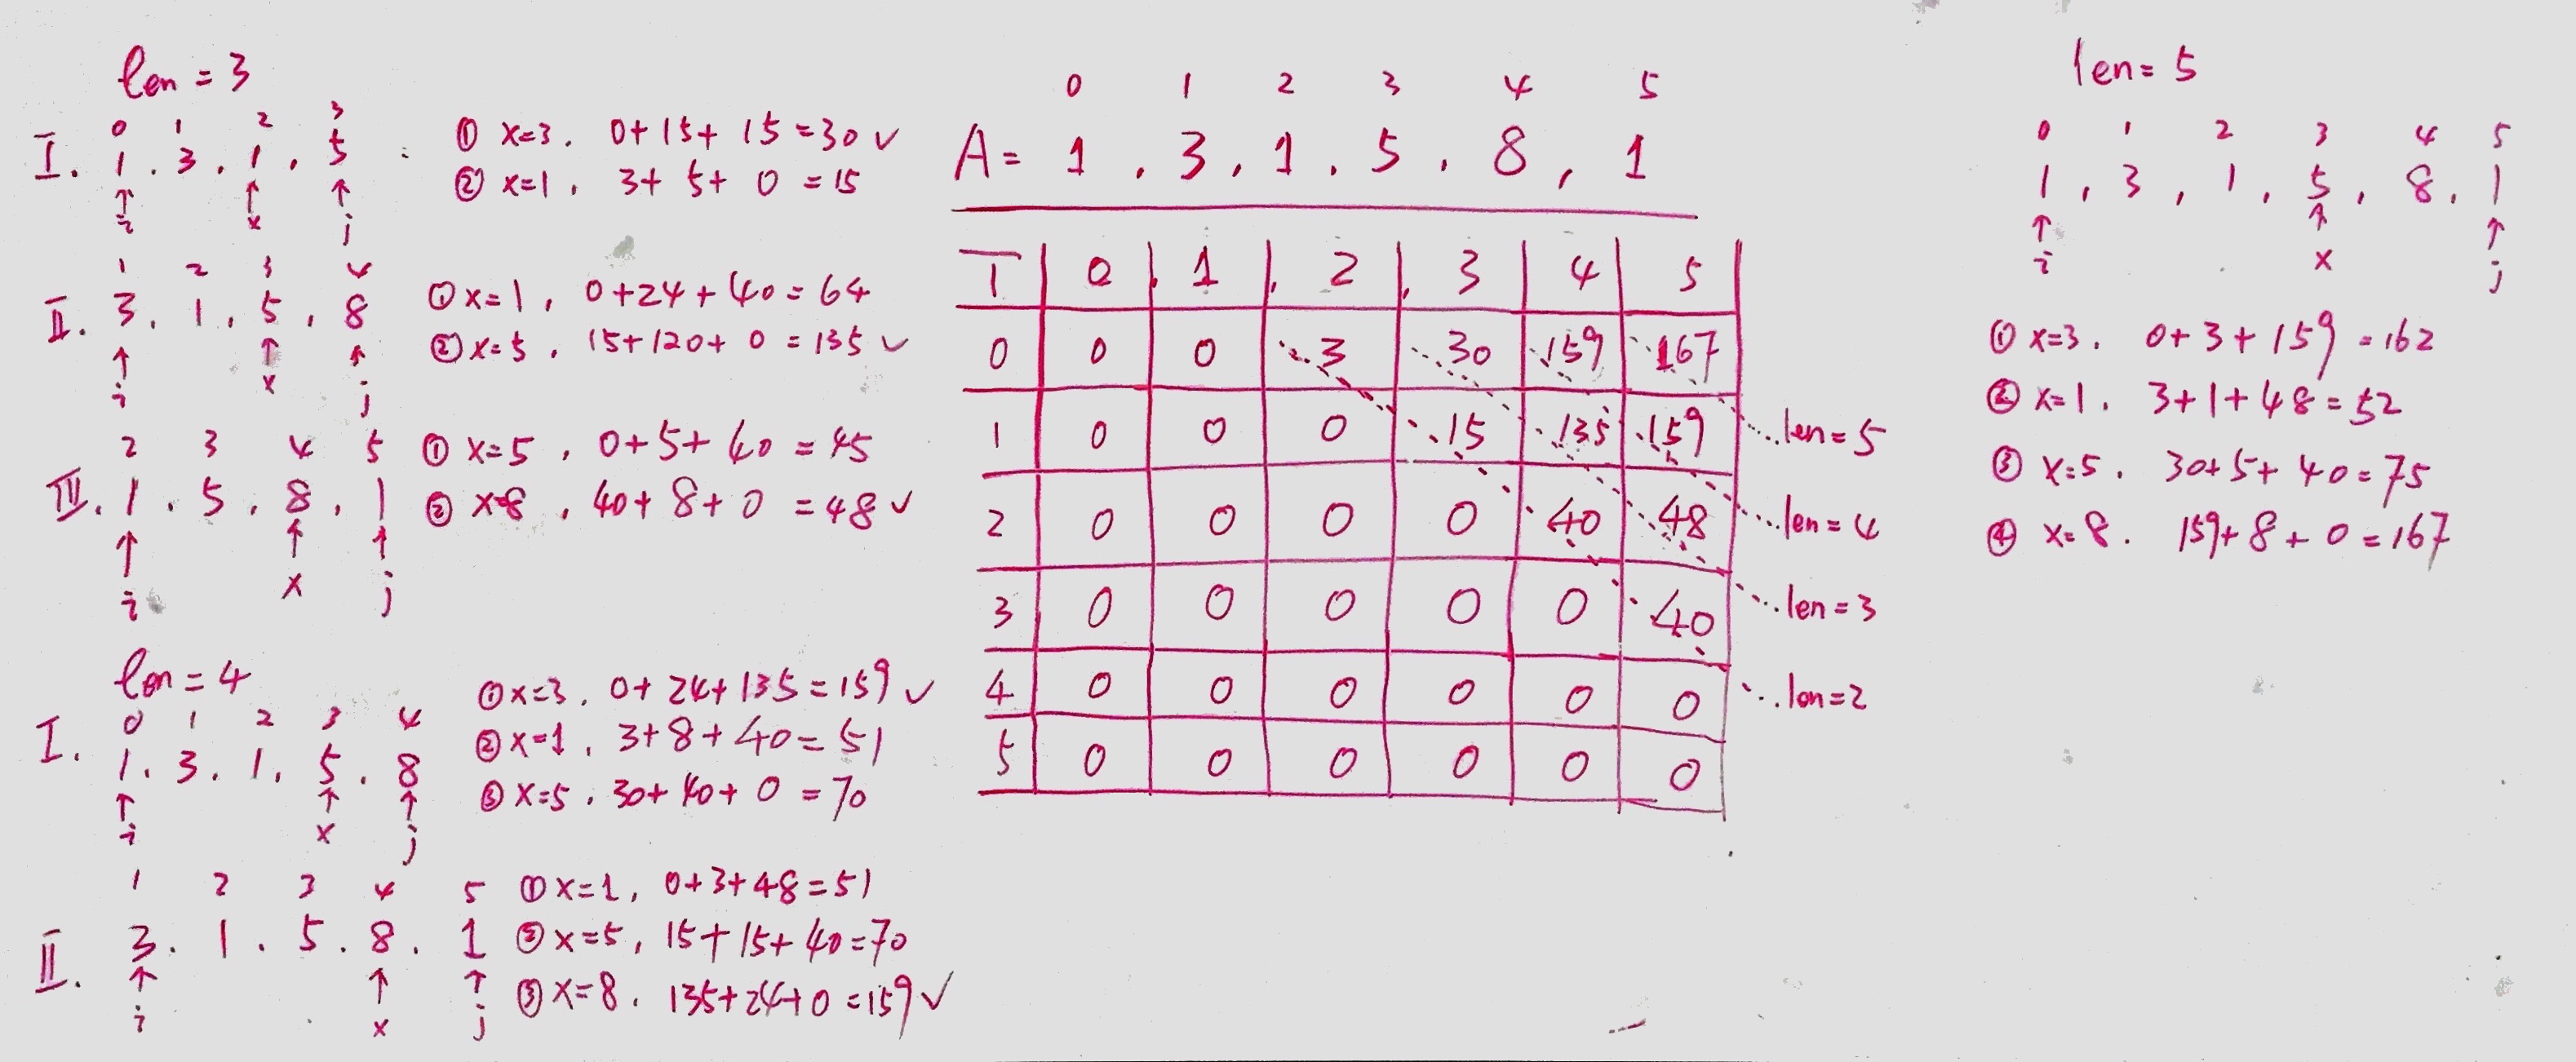 len = 3
0 1 2 3
I. 1 . 3 . 1 . 5 :
↑ ↑ ↑
i x j
① x=3. 0+15+15=30 ✓
② x=1, 3+5+0=15
1 2 3 4
II. 3. 1. 5. 8
↑ ↑ ↑
i x j
① x=1, 0+24+40=64
② x=5. 15+120+0=135 ✓
2 3 4 5
III. 1. 5. 8. 1
↑ ↑ ↑
i x j
① x=5, 0+5+40=45
② x=8, 40+8+0=48 ✓
len = 4
0 1 2 3 4
I. 1. 3. 1. 5. 8
↑ ↑ ↑
i x j
① x=3. 0+24+135=159 ✓
② x=1. 3+8+40=51
③ x=5. 30+40+0=70
1 2 3 4 5
II. 3. 1. 5. 8. 1
↑ ↑ ↑
i x j
① x=1, 0+3+48=51
② x=5, 15+15+40=70
③ x=8. 135+24+0=159 ✓
0 1 2 3 4 5
A= 1 . 3 . 1 . 5 . 8 , 1
T 0 1 2 3 4 5
0 0 0 3 30 159 167
1 0 0 0 15 135 159 len=5
2 0 0 0 0 40 48 len=4
3 0 0 0 0 0 40 len=3
4 0 0 0 0 0 0 len=2
5 0 0 0 0 0 0
len= 5
0 1 2 3 4 5
1 , 3 , 1 . 5 . 8 . 1
↑ ↑ ↑
i x j
① x=3. 0+3+159=162
② x=1. 3+1+48=52
③ x=5. 30+5+40=75
④ x=8. 159+8+0=167